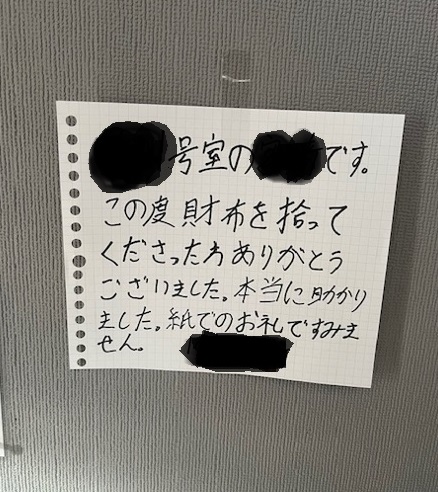 号室の です。
この度財布を拾って
くださった方ありがとう
ございました。本当に助かり
ました。紙でのお礼ですみま
せん。